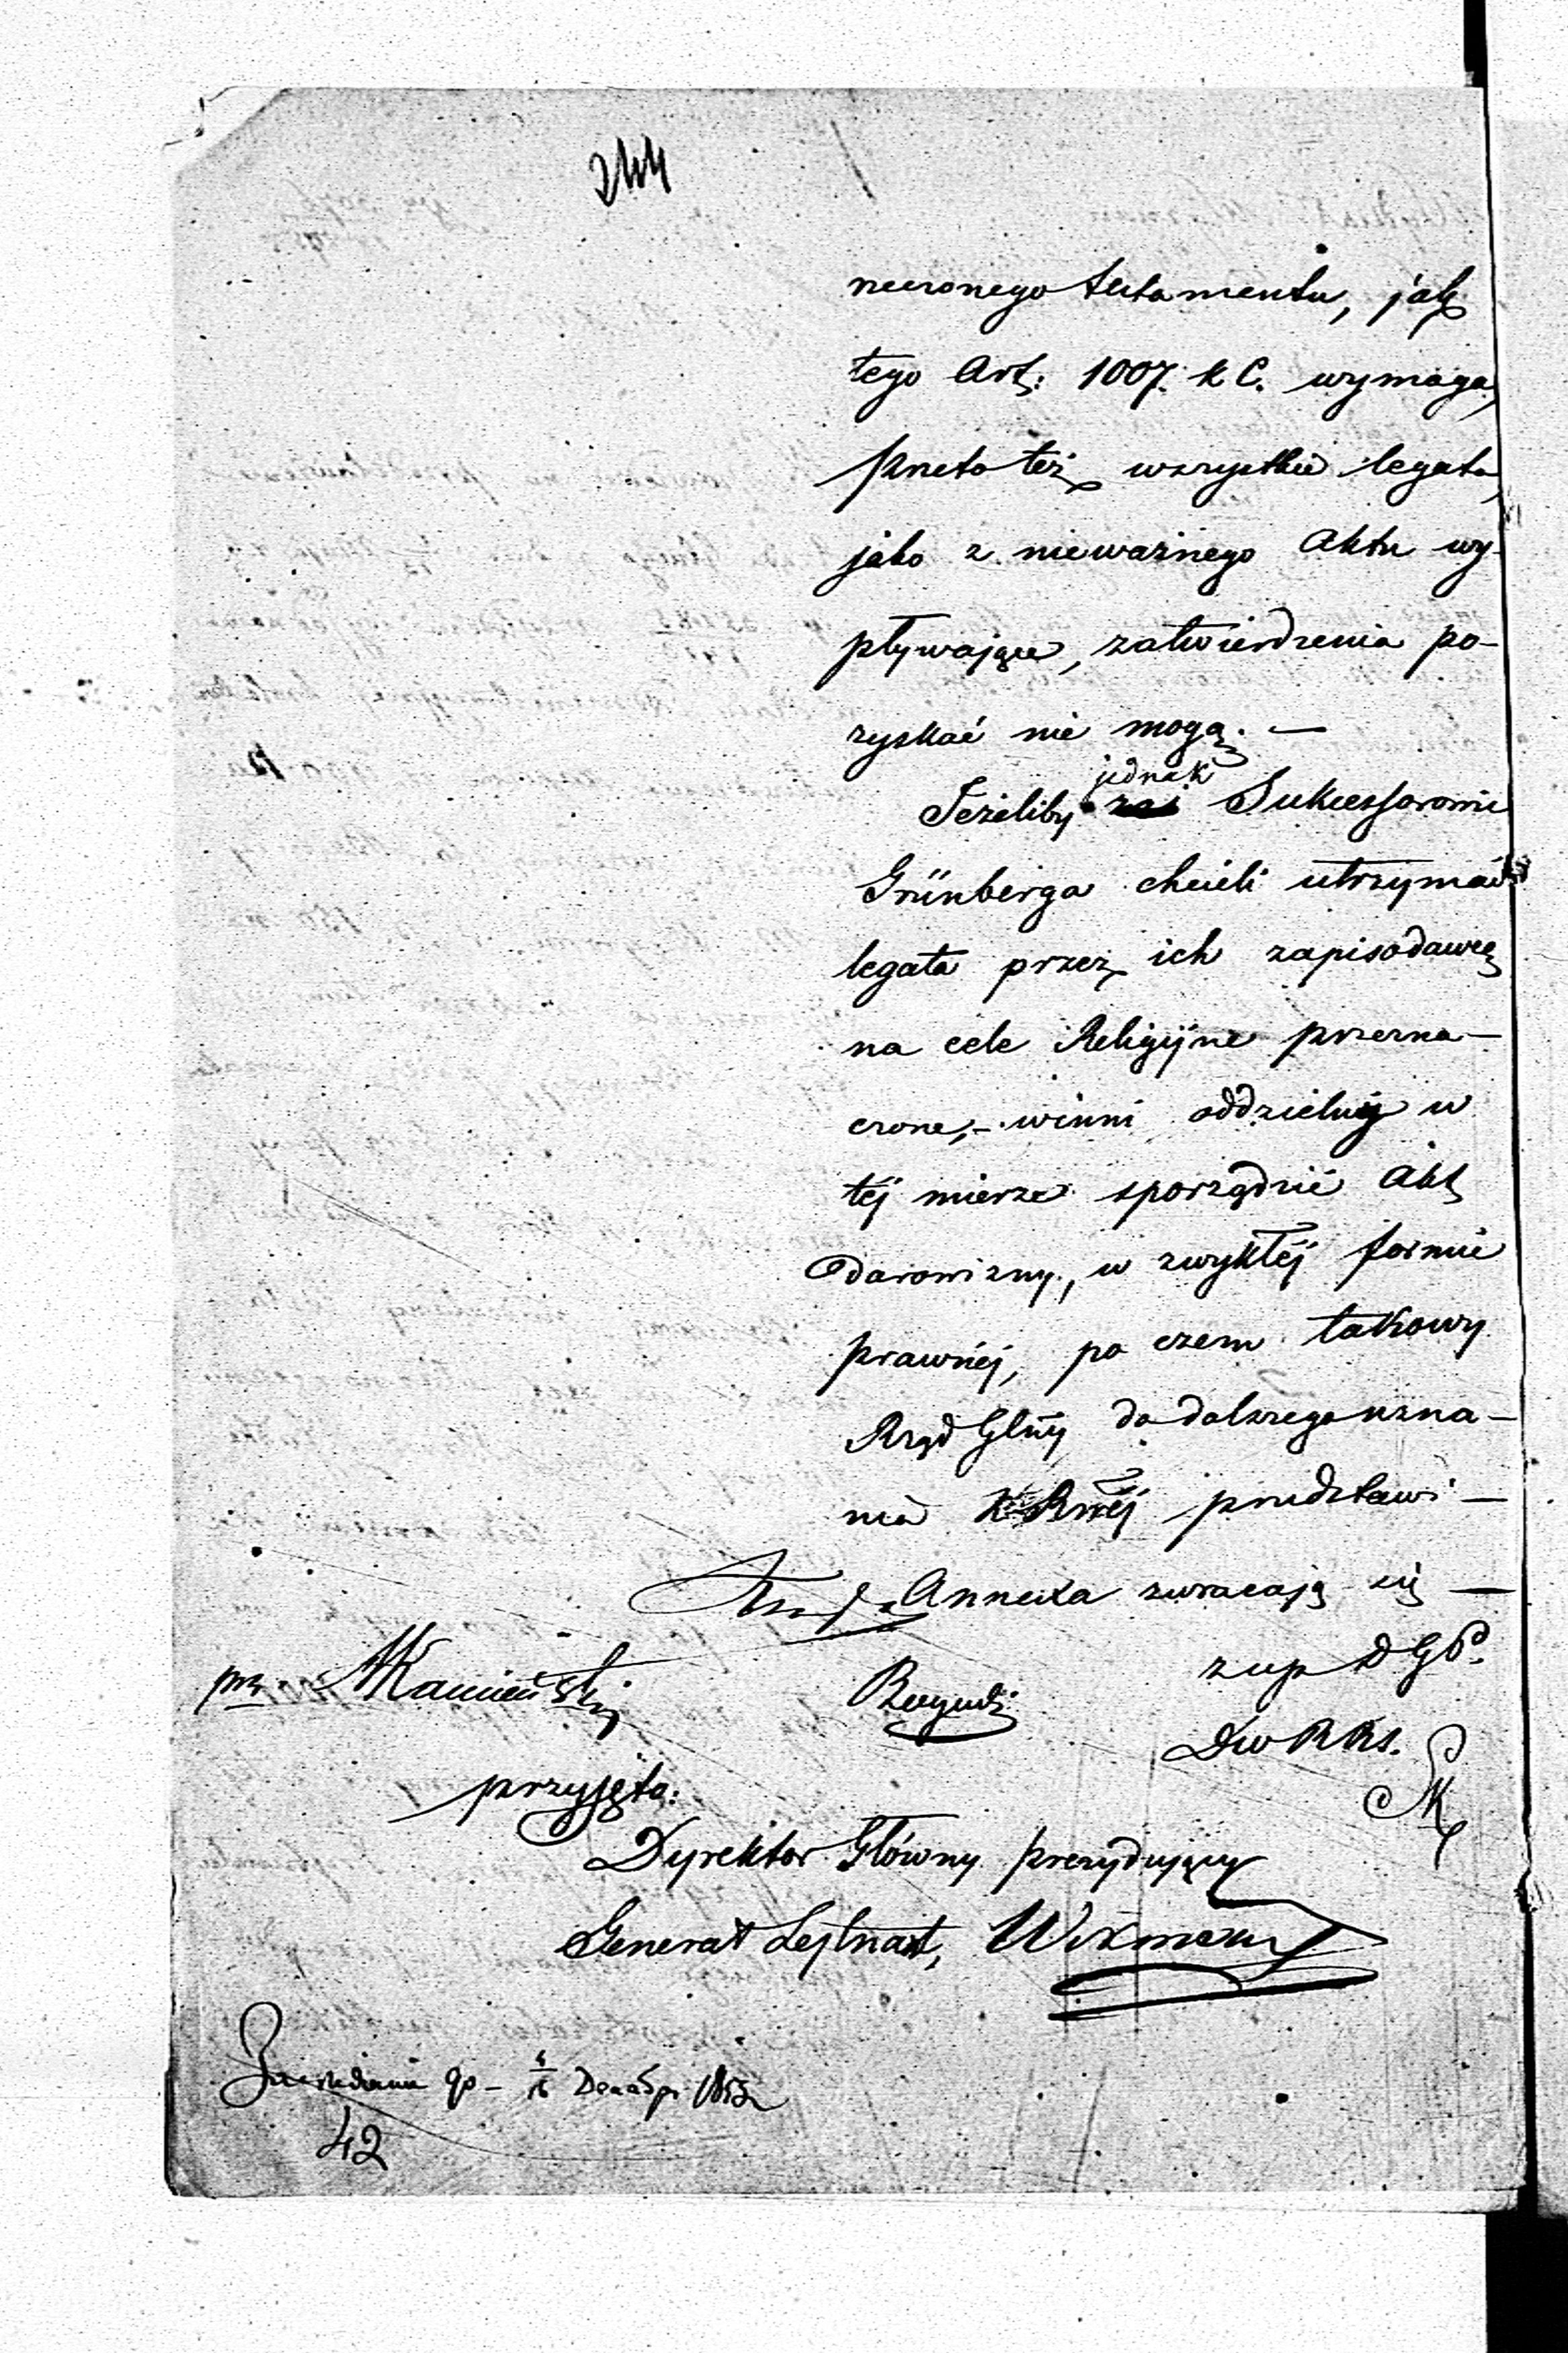 244
neczonego testamentu, jak
tego Art: 1007. k C. wymaga,
przeto też wszystkie legata,
jako z nieważnego Aktu wy-
pływające, zatwierdzenia po-
zyskać nie mogą. —
jednak
Jeżeliby Sukcessorowie
Grünberga chcieli utrzymać
legata przez ich zapisodawcę
na cele Religijne przezna-
czone, – winni oddzielny w
téj mierze sporządzić Akt
darowizny, w zwykłéj formie
prawnéj, po czem takowy
Rząd Glny do dalszego uzna-
nia przedstawi —
Annexa zwracają się —
z up D G P.
pm Kamieński
D w R Ks.
przyjęto:
Dyrektor Główny prezydujący
Generał Lejtnant, Wikinski
4/16 Декабря 1853
42